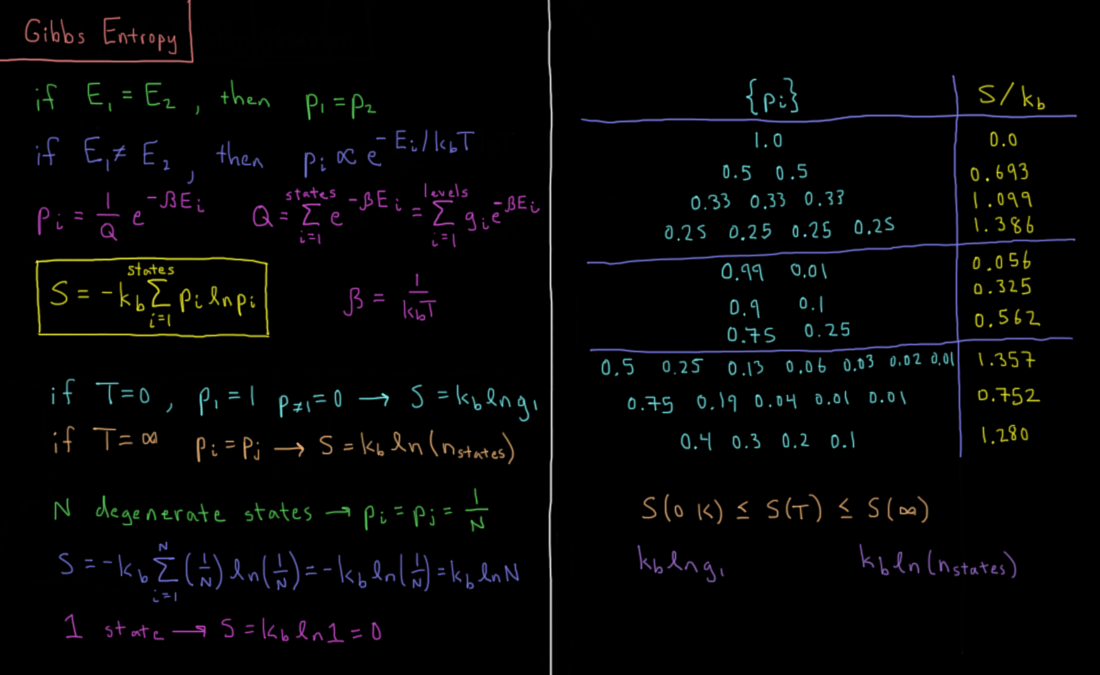 Gibbs Entropy
if E₁ = E₂ , then p₁ = p₂
if E₁ ≠ E₂ , then pᵢ ∝ e^(-Eᵢ/k_bT)
pᵢ = 1/Q e^(-βEᵢ) Q = Σ_{i=1}^{states} e^(-βEᵢ) = Σ_{i=1}^{levels} gᵢe^(-βEᵢ)
S = -k_b Σ_{i=1}^{states} pᵢ ln pᵢ β = 1/(k_bT)
if T=0 , p₁ = 1 p_{≠1} = 0 → S = k_b ln g₁
if T=∞ pᵢ = pⱼ → S = k_b ln(n_states)
N degenerate states → pᵢ = pⱼ = 1/N
S = -k_b Σ_{i=1}^{N} (1/N) ln(1/N) = -k_b ln(1/N) = k_b ln N
1 state → S = k_b ln 1 = 0
{pᵢ} S/k_b
1.0 0.0
0.5 0.5 0.693
0.33 0.33 0.33 1.099
0.25 0.25 0.25 0.25 1.386
0.99 0.01 0.056
0.9 0.1 0.325
0.75 0.25 0.562
0.5 0.25 0.13 0.06 0.03 0.02 0.01 1.357
0.75 0.19 0.04 0.01 0.01 0.752
0.4 0.3 0.2 0.1 1.280
S(0 K) ≤ S(T) ≤ S(∞)
k_b ln g₁ k_b ln(n_states)